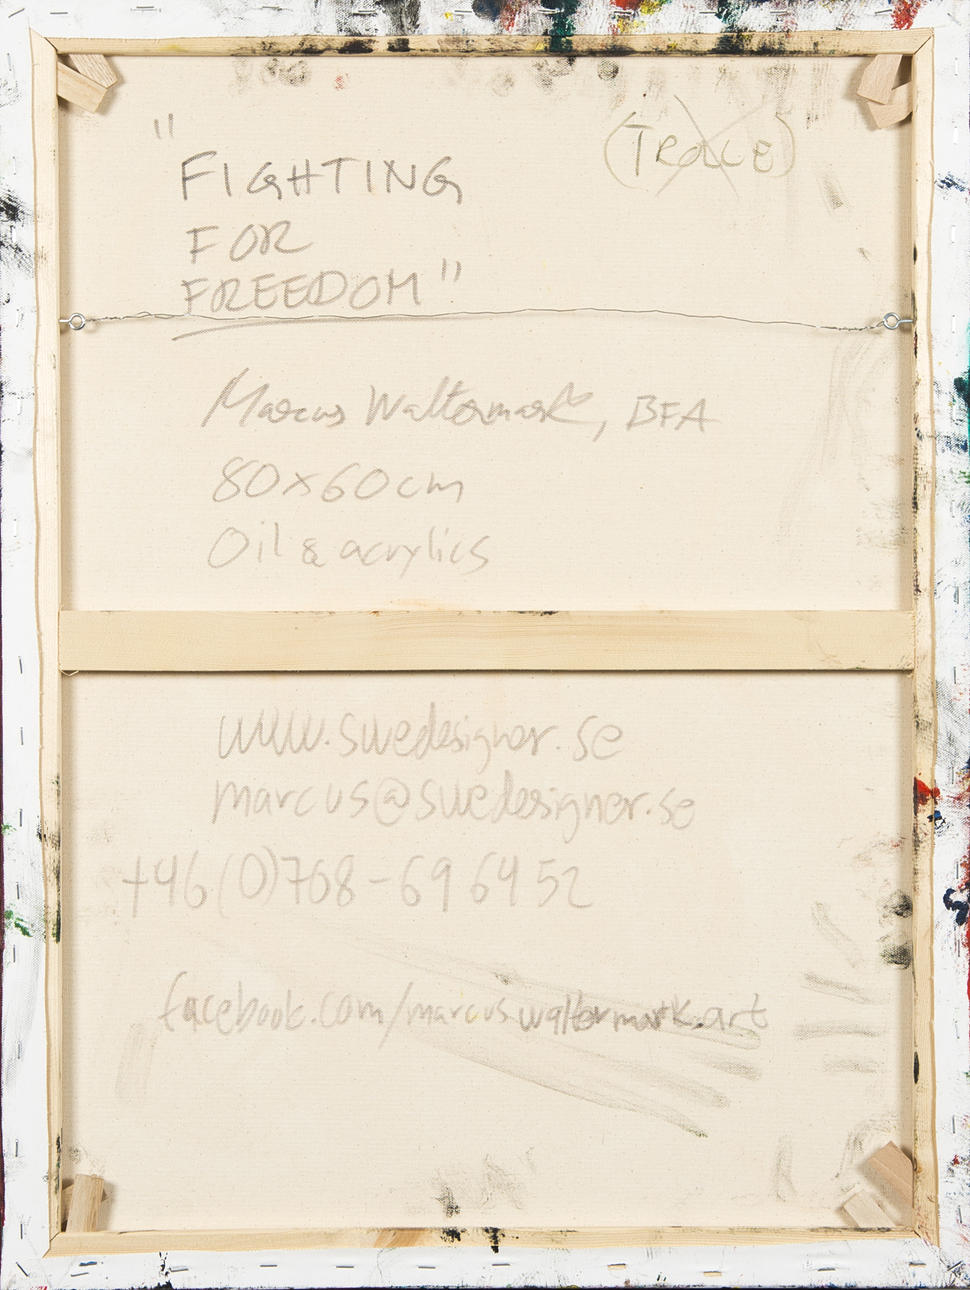 "FIGHTING
FOR
FREEDOM"
(TRACE)
Marcus Waltermark, BFA
80x60cm
Oil & acrylics
www.swedesigner.se
marcus@swedesigner.se
+46(0)768-69 64 52
facebook.com/marcuswaltermark.art